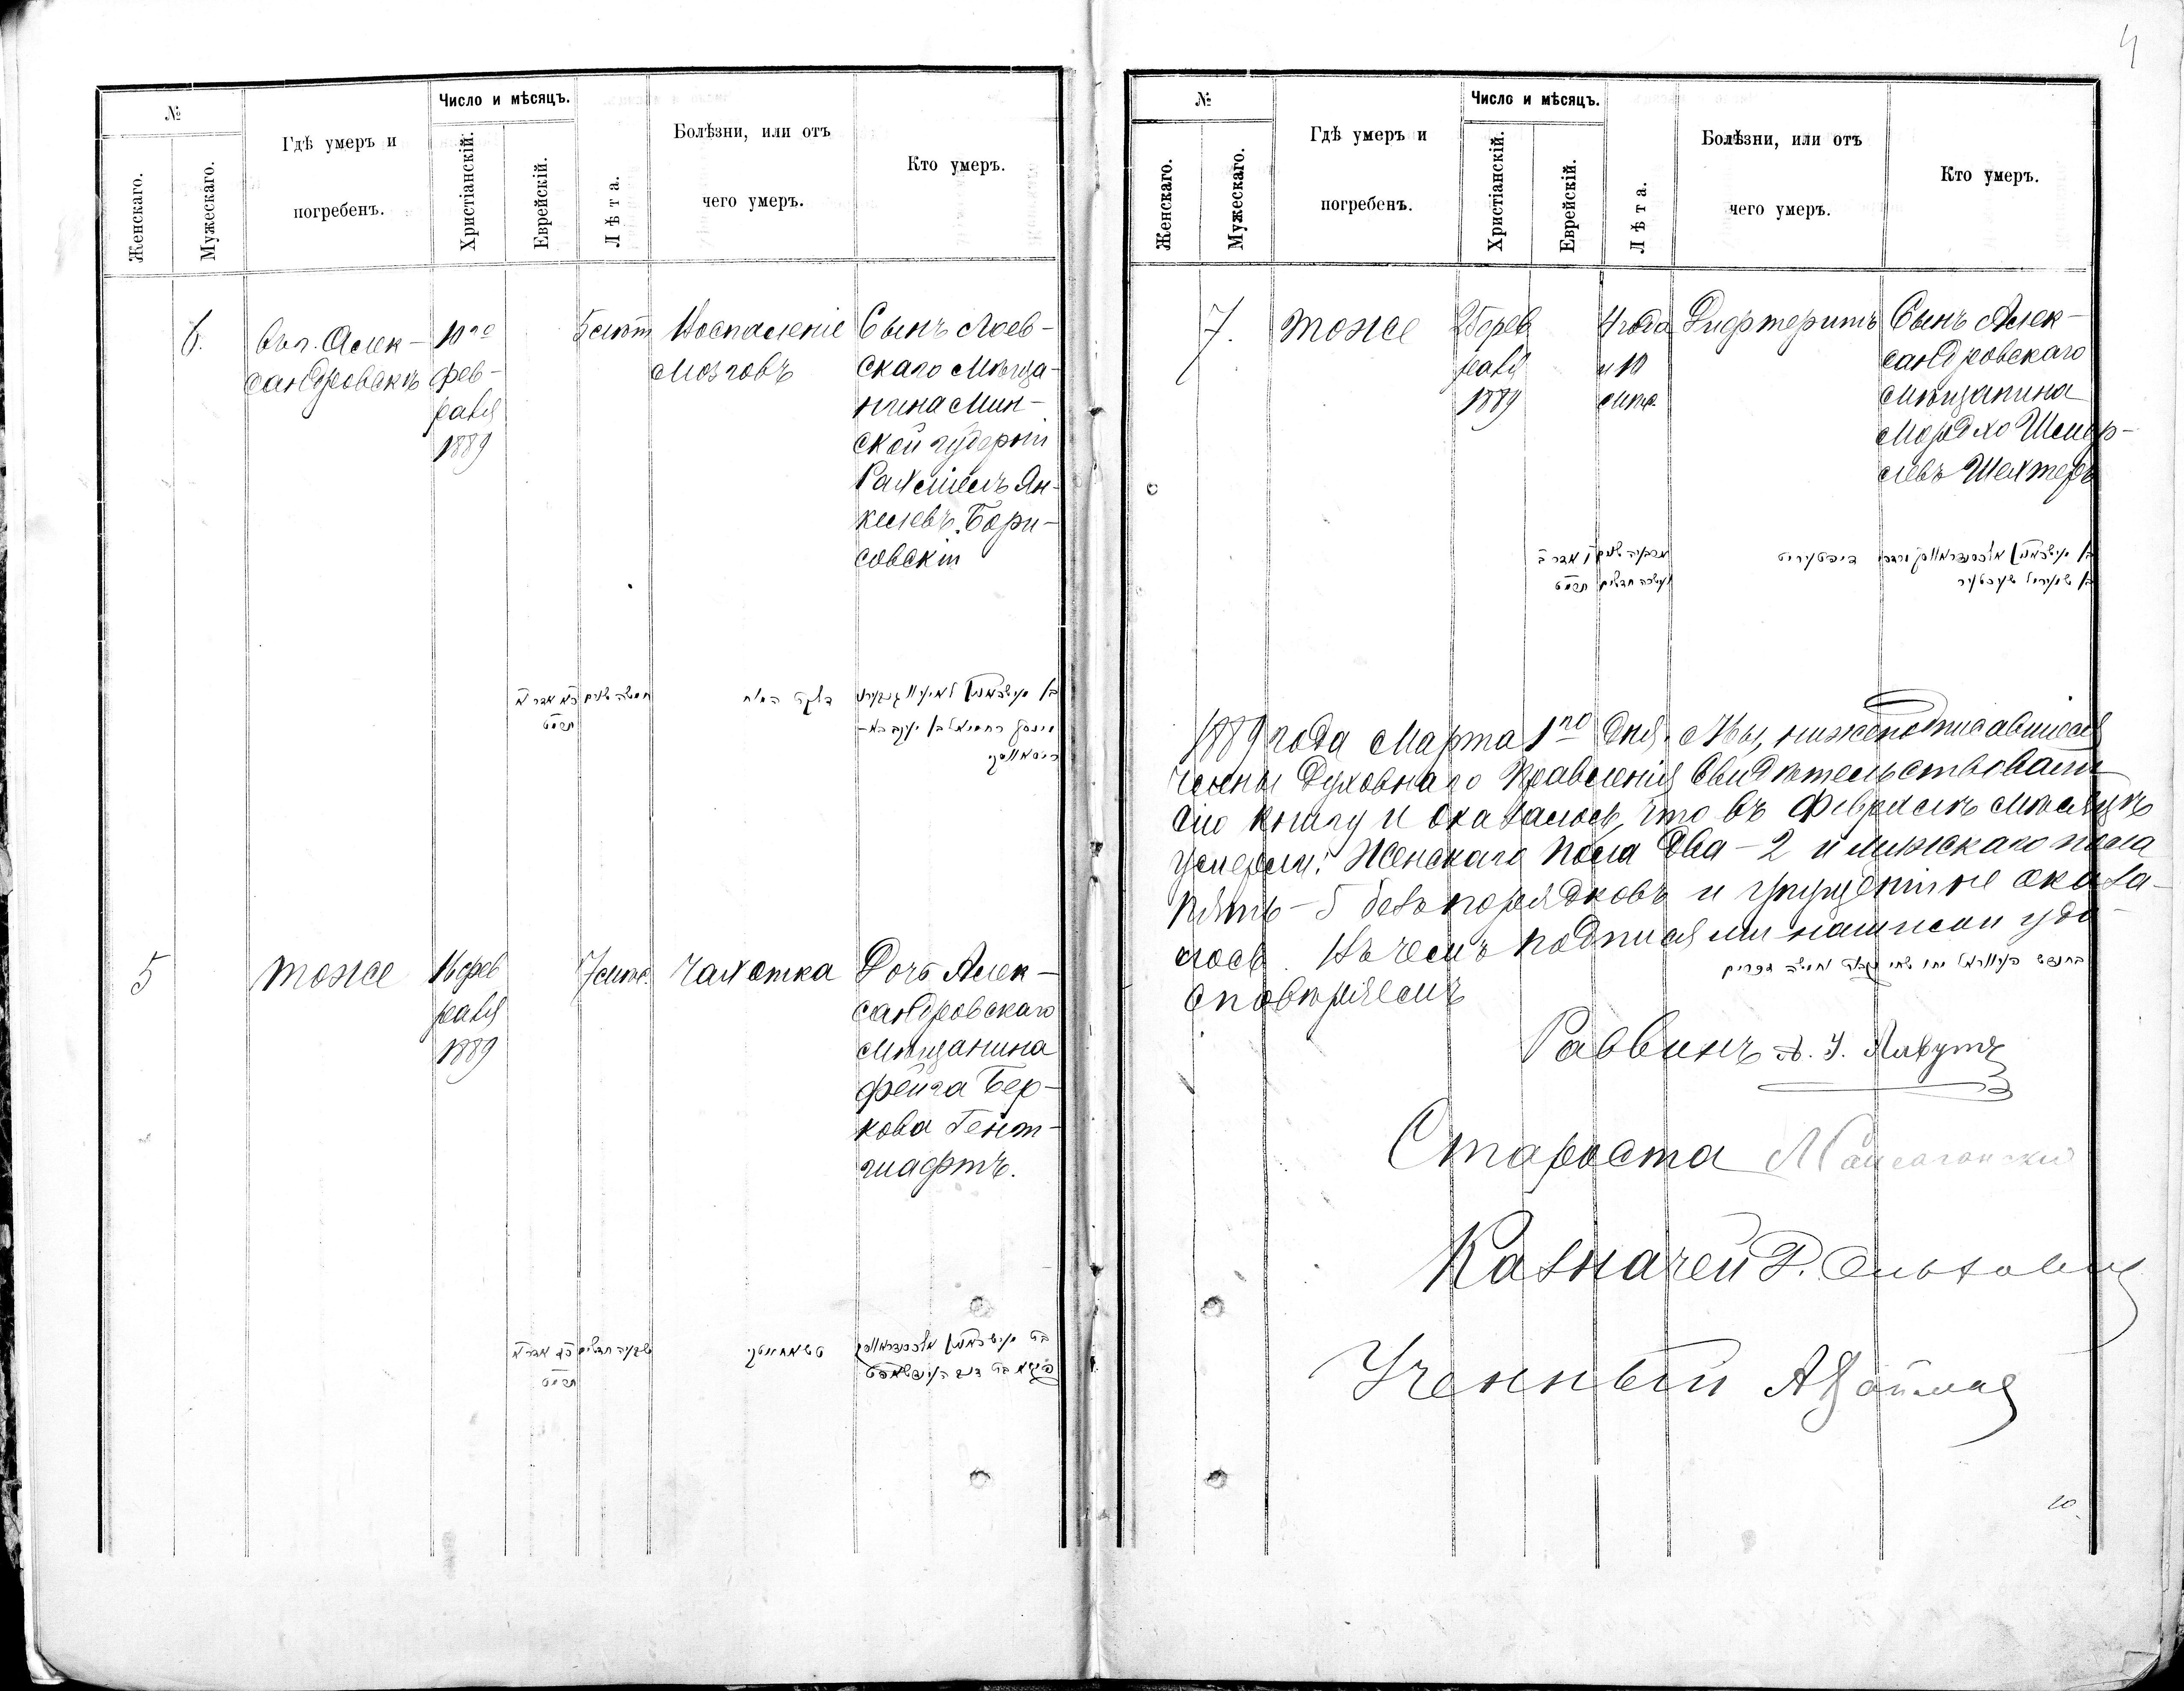 4
№
Женскаго.
Мужескаго.
Гдѣ умеръ и
погребенъ.
Число и мѣсяцъ.
Христіанскій.
Еврейскій.
Лѣта.
Болѣзни, или отъ
чего умеръ.
Кто умеръ.
6.
въ г. Алек-
сандровскѣ
10го
фев-
раля
1889
5 лѣт
Воспаленіе
мозговъ
Сынъ Лоев-
скаго мѣща-
нина Мин-
ской губерніи
Рахміель Ян-
келевъ Бори-
совскій
חמשה שנים
כא אדר א
תרמט
דלקת המוח
5
тоже
16 фев
раля
1889
7 мѣс.
чахотка
Дочь Алек-
сандровскаго
мѣщанина
Фейга Бер-
кова Гент-
шафтъ.
שבעה חדשים
תרמט
№
Женскаго.
Мужескаго.
Гдѣ умеръ и
погребенъ.
Число и мѣсяцъ.
Христіанскій.
Еврейскій.
Лѣта.
Болѣзни, или отъ
чего умеръ.
Кто умеръ.
7.
тоже
фев
раля
1889
4 года
и 10
мѣс.
Дифтеритъ
Сынъ Алек-
сандровскаго
мѣщанина
Мордхо Шмер-
левъ Шехтеръ
ארבעה שנים
עשרה חדשים
תרמט
1889 года Марта 1го дня. Мы, нижеподписавшіеся
члены Духовнаго Правленія свидѣтельствовали
сію книгу и оказалось, что въ Февралѣ мѣсяцѣ
умерли: Женскаго пола два - 2 и мужскаго пола
пять - 5 безпорядковъ и упущеній не оказа-
лось. Въ чемъ подписями нашими удо-
стовѣряемъ
Раввинъ
Староста
Казначей
Ученный
10